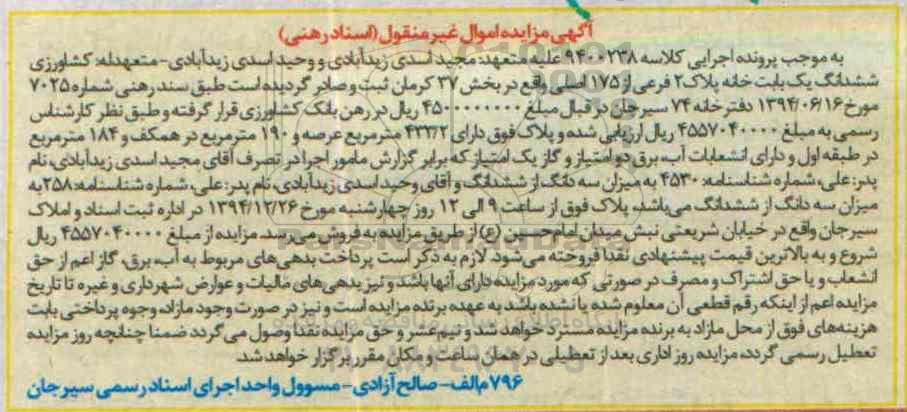 آگهی مزایده اموال غیر منقول (اسناد رهنی)
به موجب پرونده اجرایی کلاسه ۹۴۰۰۲۳۸ علیه متعهد: مجید اسدی زیدآبادی و وحید اسدی زیدآبادی- متعهدله: کشاورزی
ششدانگ یک بابت خانه پلاک ۲ فرعی از ۱۷۵ اصلی واقع در بخش ۳۷ کرمان ثبت و صادر گردیده است طبق سند رهنی شماره ۷۰۲۵
مورخ ۱۳۹۴/۰۶/۱۶ دفترخانه ۷۴ سیرجان در قبال مبلغ ۴۵۰۰۰۰۰۰۰۰ ریال در رهن بانک کشاورزی قرار گرفته و طبق نظر کارشناس
رسمی به مبلغ ۴۵۵۷۰۴۰۰۰۰ ریال ارزیابی شده و پلاک فوق دارای ۴۳۳/۲ متر مربع عرصه و ۱۹۰ مترمربع در همکف و ۱۸۴ مترمربع
در طبقه اول و دارای انشعابات آب، برق دو امتیاز و گاز یک امتیاز که برابر گزارش مامور اجرا در تصرف آقای مجید اسدی زیدآبادی، نام
پدر: علی، شماره شناسنامه: ۴۵۳۰ به میزان سه دانگ از ششدانگ و آقای وحید اسدی زیدآبادی، نام پدر: علی، شماره شناسنامه: ۲۵۸ به
میزان سه دانگ از ششدانگ می‌باشد، پلاک فوق از ساعت ۹ الی ۱۲ روز چهارشنبه مورخ ۱۳۹۴/۱۲/۲۶ در اداره ثبت اسناد و املاک
سیرجان واقع در خیابان شریعتی نبش میدان امام حسین (ع) از طریق مزایده به فروش می‌رسد. مزایده از مبلغ ۴۵۵۷۰۴۰۰۰۰ ریال
شروع و به بالاترین قیمت پیشنهادی نقدا فروخته می‌شود. لازم به ذکر است پرداخت بدهی‌های مربوط به آب، برق، گاز اعم از حق
انشعاب و یا حق اشتراک و مصرف در صورتی که مورد مزایده دارای آنها باشد و نیز بدهی‌های مالیات و عوارض شهرداری و غیره تا تاریخ
مزایده اعم از اینکه رقم قطعی آن معلوم شده یا نشده باشد به عهده برنده مزایده است و نیز در صورت وجود مازاد، وجوه پرداختی بابت
هزینه‌های فوق از محل مازاد به برنده مزایده مسترد خواهد شد و نیم عشر و حق مزایده نقدا وصول می گردد ضمنا چنانچه روز مزایده
تعطیل رسمی گردد، مزایده روز اداری بعد از تعطیلی در همان ساعت و مکان مقرر برگزار خواهد شد.
۷۹۶ م‌الف- صالح آزادی- مسوول واحد اجرای اسناد رسمی سیرجان